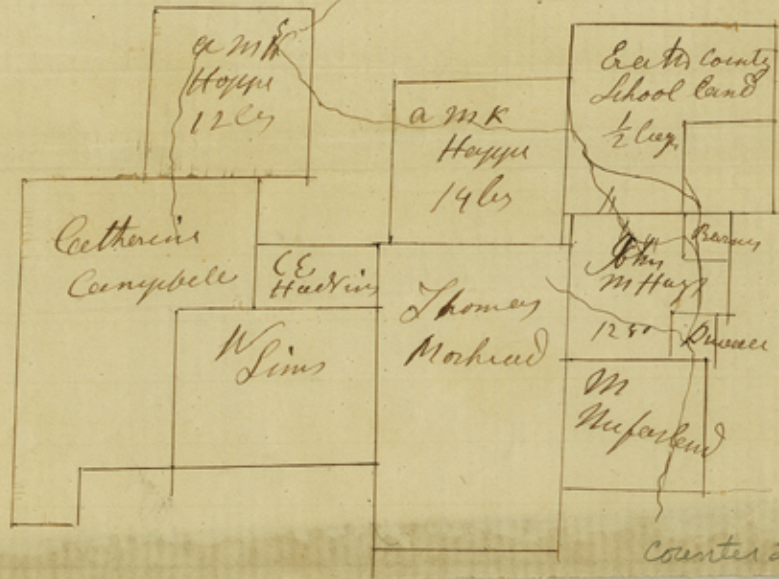 a m K
Hoppe
12 Ces
a m K
Hoppe
14 Ces
Erath County
School Land
1/2 Leag
Catherine
Campbell
C E
Hadkins
W
Sims
Thomas
Morhead
John
M Hays
1280
Barnes
M
McFarland
Counter